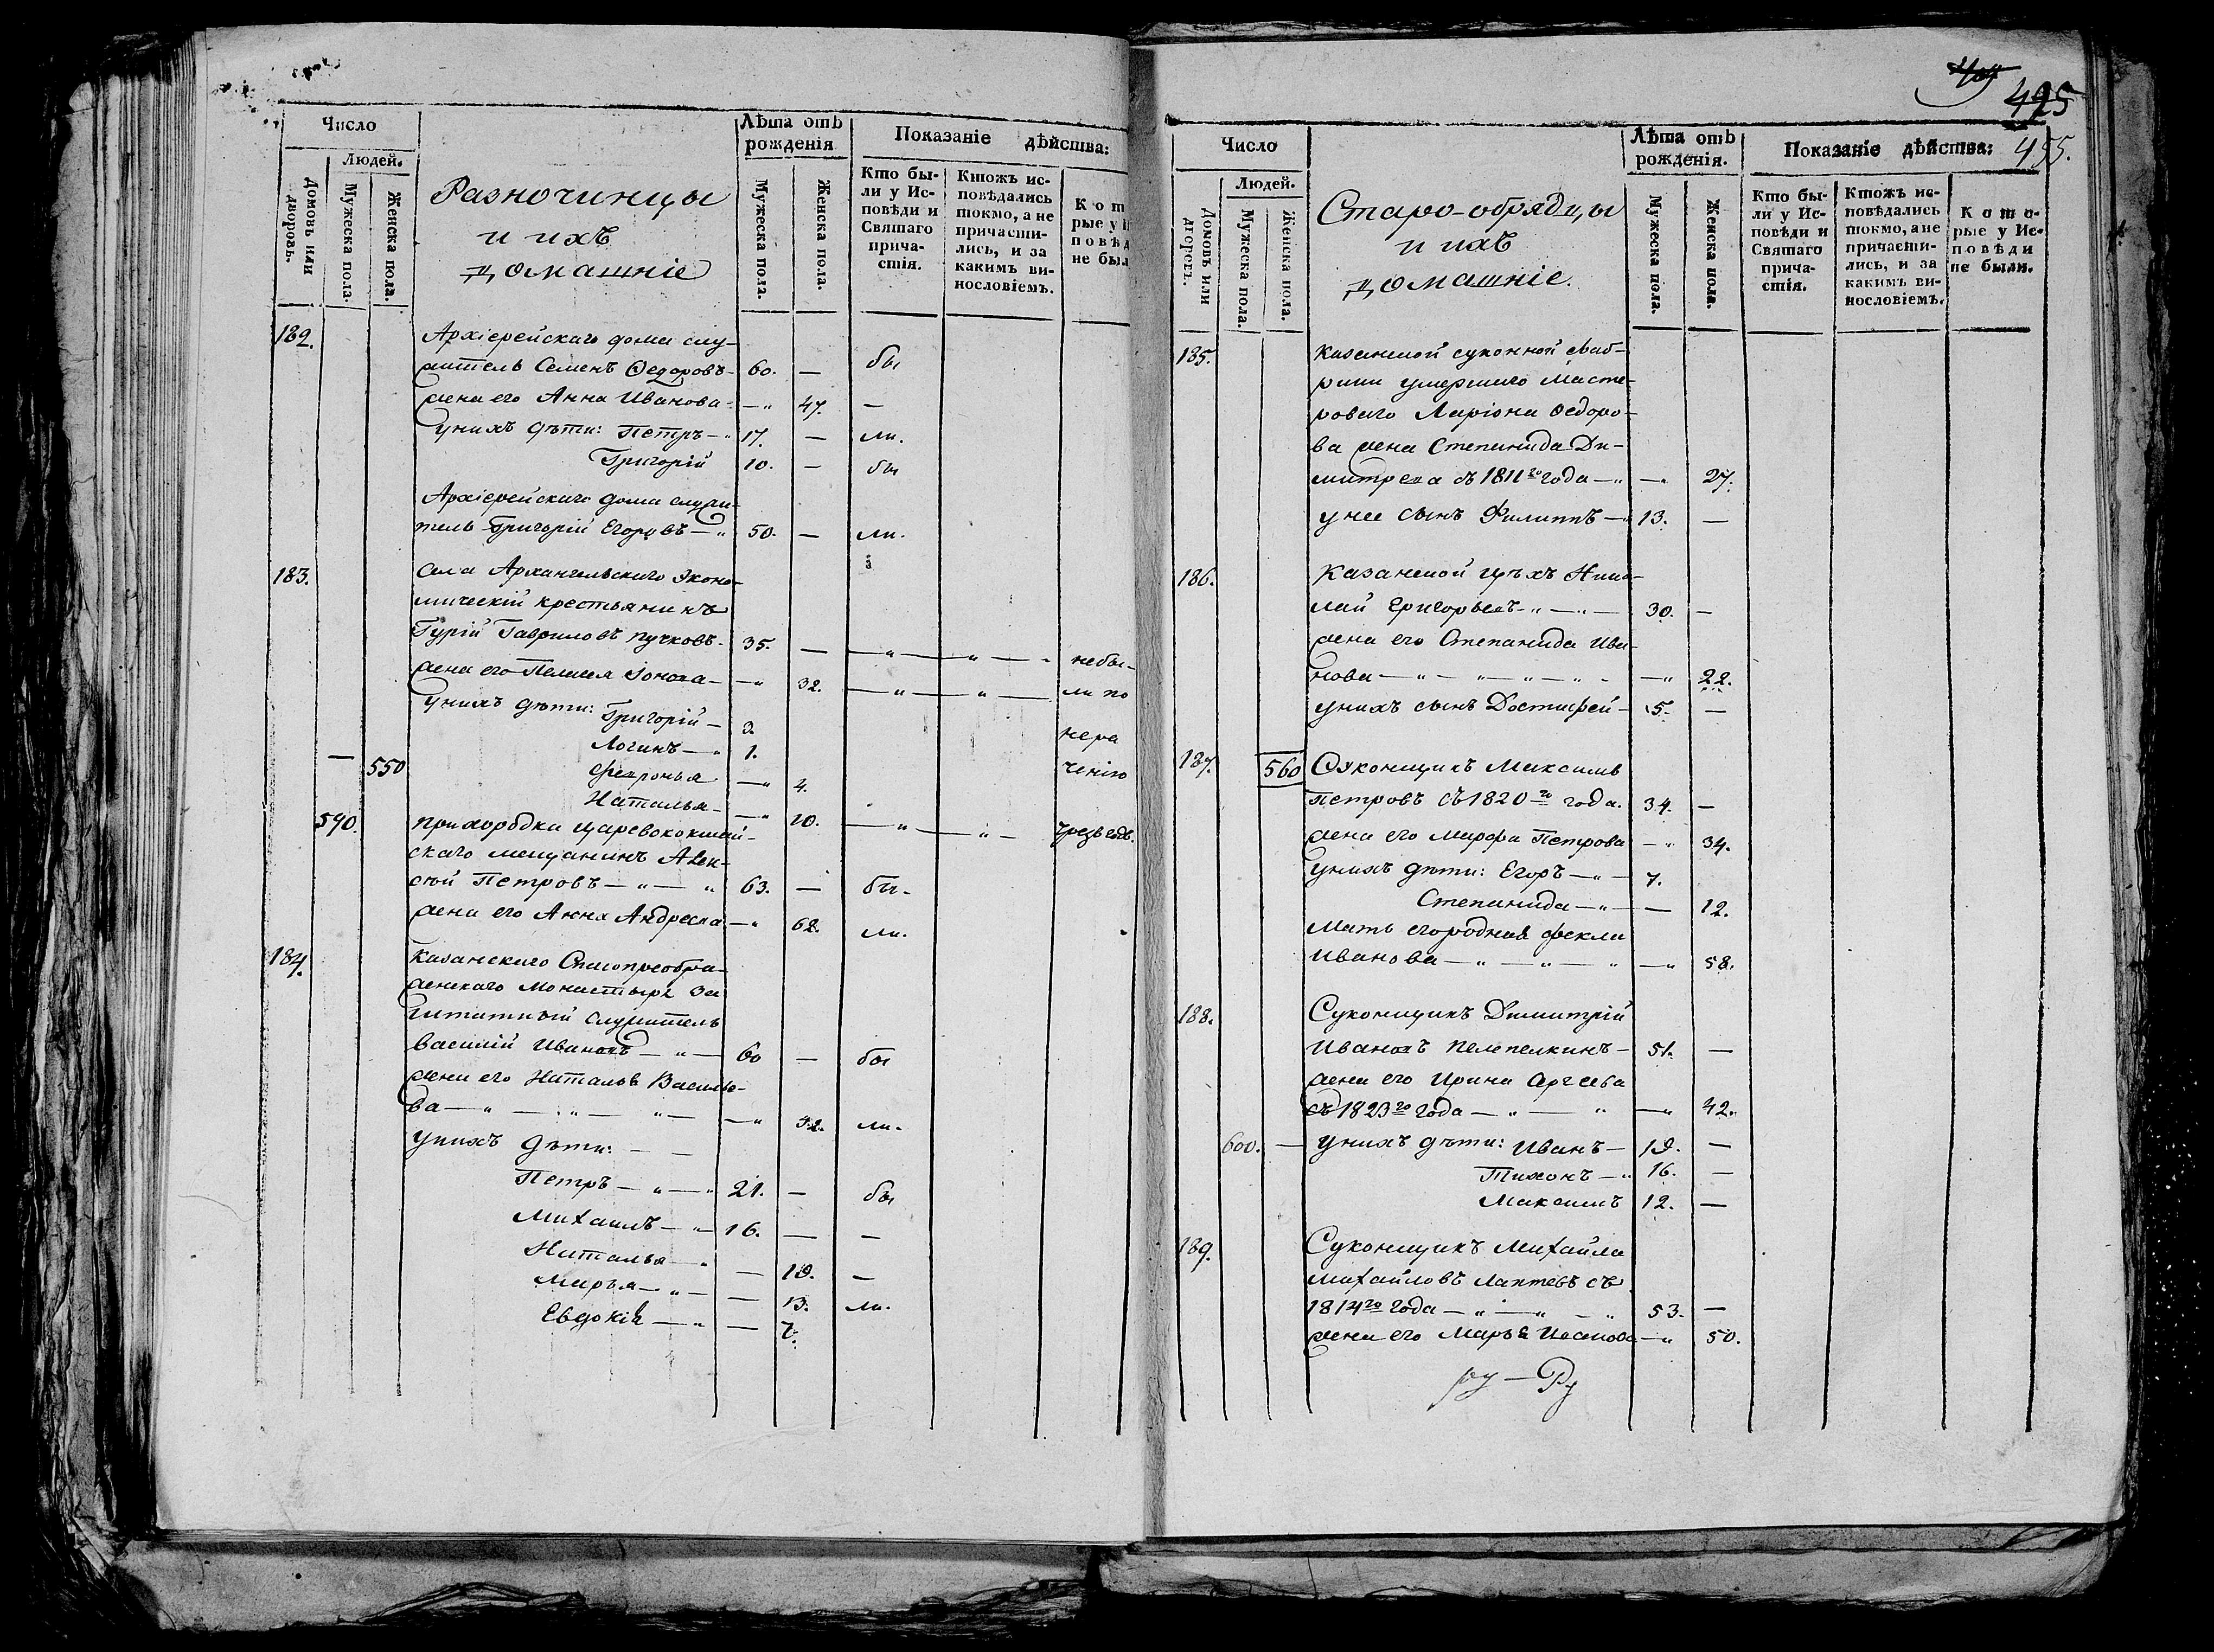 Число
Людей.
Домовъ или дворовъ.
Мужеска пола.
Женска пола.
Разночинцы
и ихъ
домашніе
Лѣта отъ рожденія
Мужеска пола.
Женска пола.
Показаніе дѣйства:
Кто бы-
ли у Ис-
повѣди и
Святаго
прича-
стія.
Ктожъ ис-
повѣдались
токмо, а не
причасти-
лись, и за
какимъ ви-
нословіемъ.
Кот
рые у И
повѣд
не был
182.
Архіерейскаго дома слу-
житель Семенъ Ѳедоровъ - 60. — бы
жена его Анна Иванова - — „ 47. —
у нихъ дѣти: Петръ — „ 17. — ли.
Григорій 10. — бы
Архіерейскаго дома служи-
тель Григорій Егоровъ — „ 50. — ли.
183. села Архангельскаго Эконо-
мическій крестьянинъ
Гурій Гавриловъ Пучковъ - 35. — — „ — „ — не бы-
жена его Пелагея Іонова — — „ 32. — „ — „ — ли по
у нихъ дѣти: Григорій — 3.
нера
Логинъ — „ 1.
— 550 Февронья — „ 4. ченію
Наталья — — „ 20. — „ — „ — чрезъ годъ.
590. пригородка Царевококшай-
скаго мещанинъ Алек-
сѣй Петровъ — „ — „ 63. — бы-
жена его Анна Андреева — „ 62. ли.
184. Казанскаго Спасопреобра-
женскаго Монастыря за
штатный служитель
Василій Ивановъ — „ — 60 — бы
жена его Наталья Василье-
ва — „ — „ — „ — — „ 42. ли.
у нихъ дѣти: — —
Петръ — „ — „ 21. — бы
Михаилъ — „ 16. — —
Наталья — „ — 19. —
Марья — „ — — 13. ли.
Евдокія — „ — 7.
495
455.
Число
Людей.
Домовъ или дворовъ.
Мужеска пола.
Женска пола.
Старо-обрядцы
и ихъ
домашніе.
Лѣта отъ рожденія.
Мужеска пола.
Женска пола.
Показаніе дѣйства:
Кто бы-
ли у Ис-
повѣди и
Святаго
прича-
стія.
Ктожъ ис-
повѣдались
токмо, а не
причасти-
лись, и за
какимъ ви-
нословіемъ.
Кото-
рые у Ис-
повѣди
не были.
185. Казанской суконной фаб-
рики умершаго Масте-
роваго Ларіона Ѳедоро-
ва жена Степанида Ди-
митрева съ 1811го года — „ — „ 27.
у нее сынъ Филиппъ — „ 13. —
186. Казанской цѣхъ Нико-
лай Григорьевъ - „ — „ — 30. —
жена его Степанида Ива-
нова — „ — „ — „ — „ - — „ 22.
у нихъ сынъ Достифей - 5. —
187. 560 Суконщикъ Максимъ
Петровъ съ 1820го года. 34. —
жена его Марфа Петрова — „ 34.
у нихъ дѣти: Егоръ — „ — 7.
Степанида — „ — — 12.
Мать его родная Фекла
Иванова — „ — „ — „ — „ 58.
188. Суконщикъ Димитрій
Ивановъ Пелепелкинъ — 51. —
жена его Ирина Сергеева
съ 1823го года — „ — „ — „ 42.
600. — у нихъ дѣти: Иванъ — 19. —
Тихонъ — „ 16. —
Максимъ 12. —
189. Суконщикъ Михайла
Михайловъ Лаптевъ съ
1814го года — „ — „ — „ 53. —
жена его Марья Иванова — „ 50.